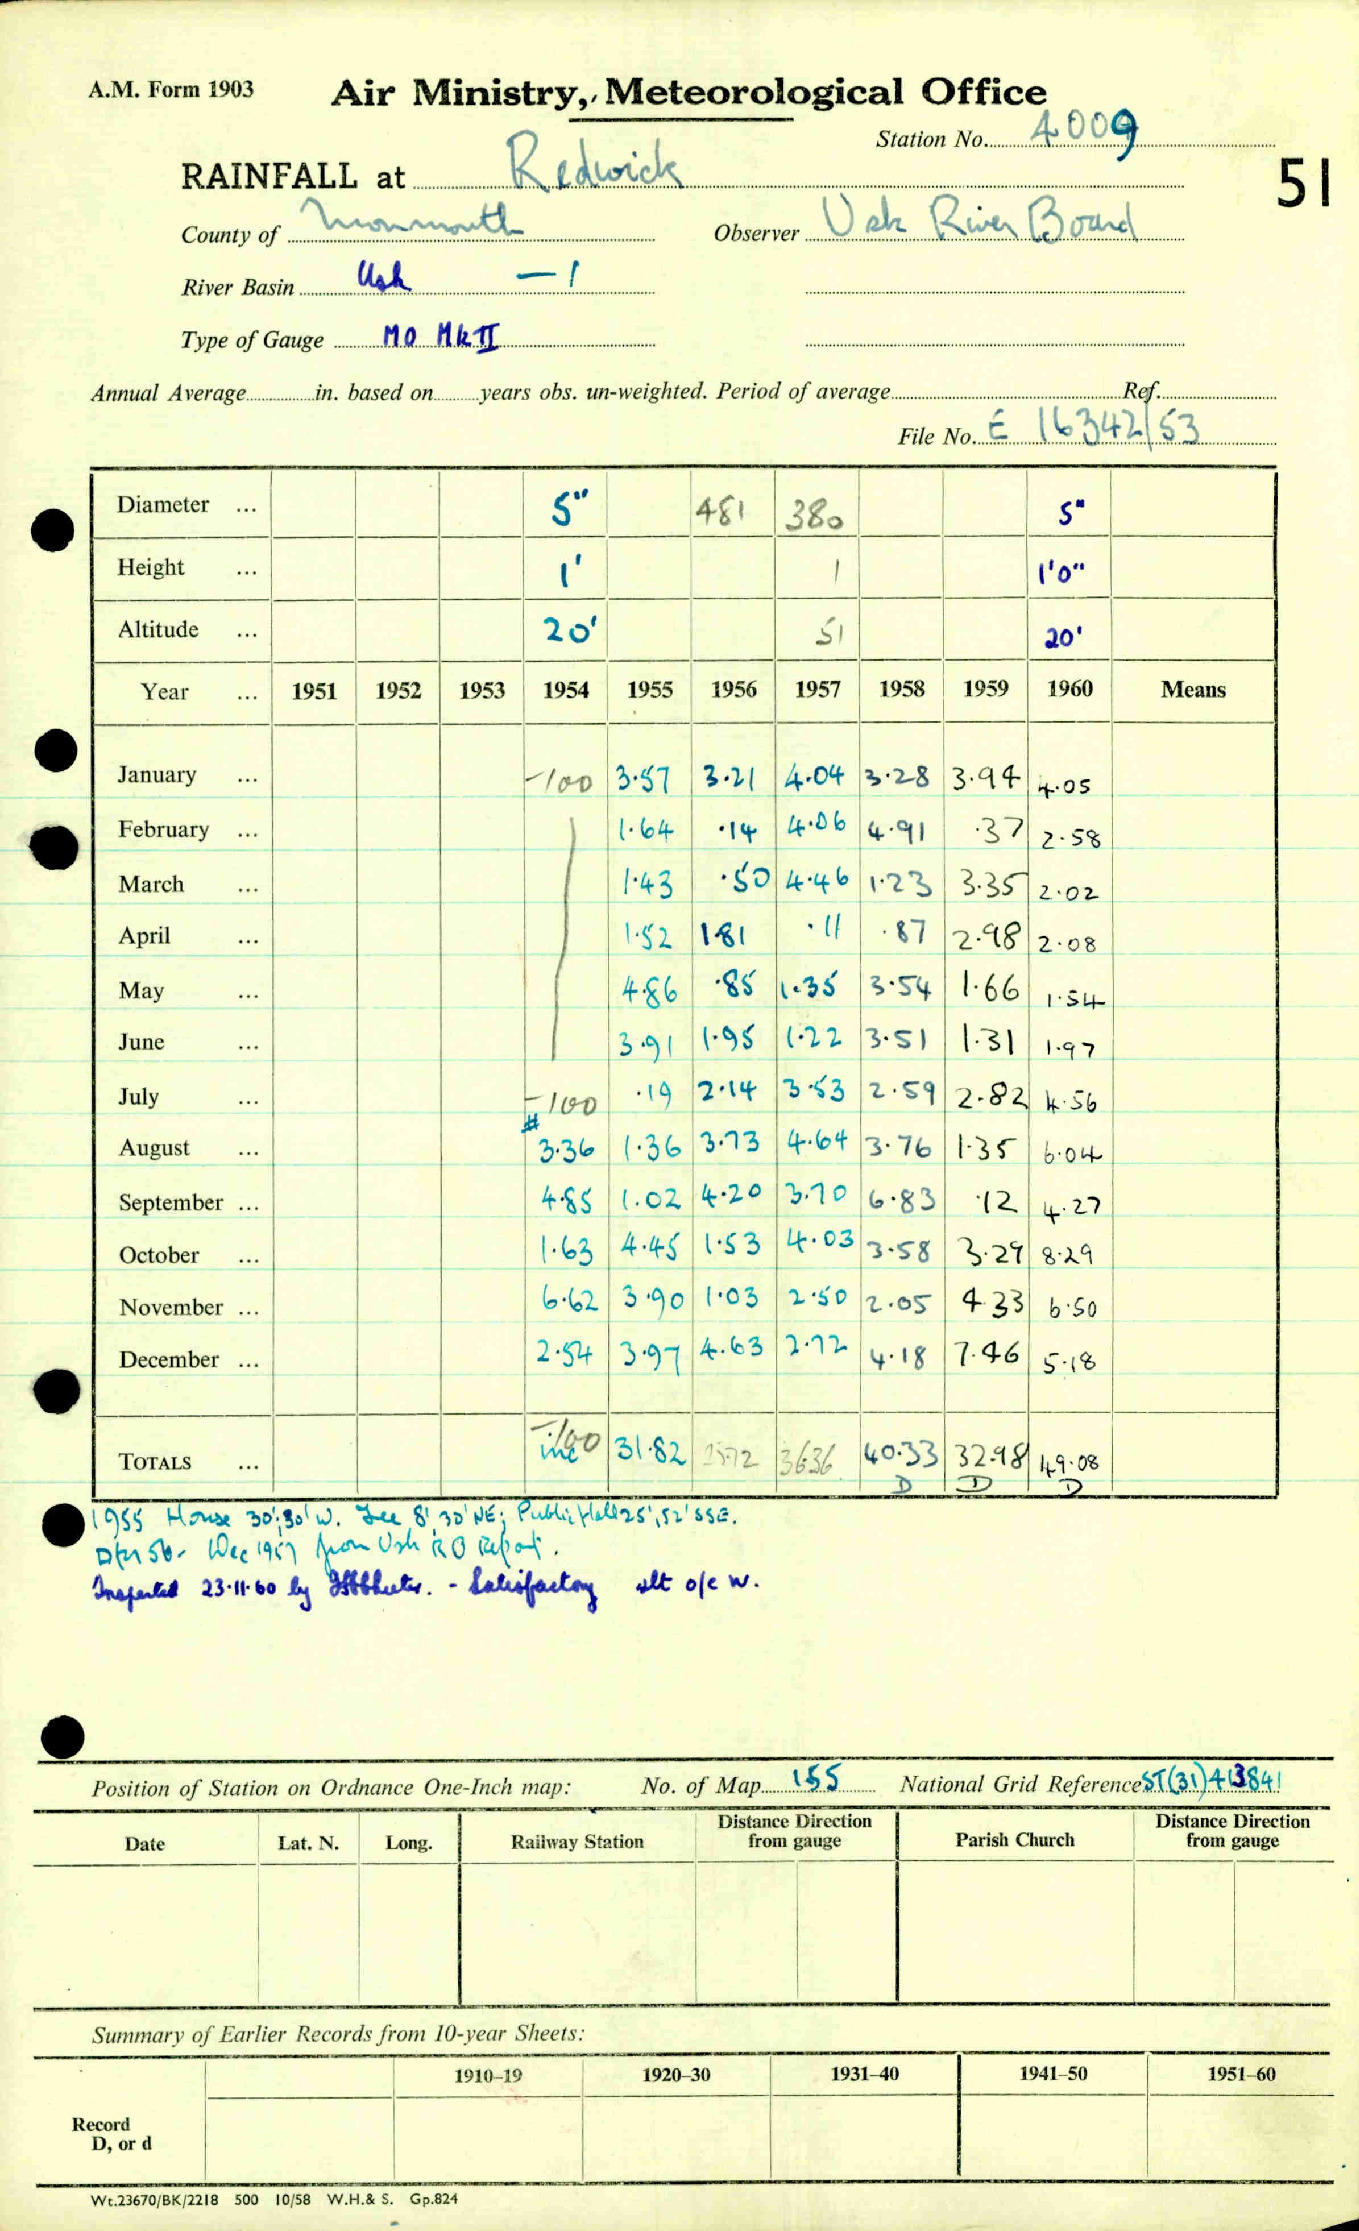 A.M. Form 1903
Air Ministry, Meteorological Office
Station No. 4009
51
RAINFALL at Redwick
County of Monmouth Observer Usk River Board
River Basin Usk —1
Type of Gauge MO Mk II
Annual Average in. based on years obs. un-weighted. Period of average Ref.
File No. E 16342/53
Diameter ... 5" 481 380 5"
Height ... 1' 1 1'0"
Altitude ... 20' 51 20'
Year ... 1951 1952 1953 1954 1955 1956 1957 1958 1959 1960 Means
January ... -100 3.57 3.21 4.04 3.28 3.94 4.05
February ... 1.64 .14 4.06 4.91 .37 2.58
March ... 1.43 .50 4.46 1.23 3.35 2.02
April ... 1.52 1.81 .11 .87 2.98 2.08
May ... 4.86 .85 1.35 3.54 1.66 1.54
June ... 3.91 1.95 1.22 3.51 1.31 1.97
July ... -100 .19 2.14 3.53 2.59 2.82 4.56
August ... # 3.36 1.36 3.73 4.64 3.76 1.35 6.04
September ... 4.85 1.02 4.20 3.70 6.83 .12 4.27
October ... 1.63 4.45 1.53 4.03 3.58 3.29 8.29
November ... 6.62 3.90 1.03 2.50 2.05 4.33 6.50
December ... 2.54 3.97 4.63 2.72 4.18 7.46 5.18
TOTALS ... inc -100 31.82 25.72 36.36 40.33 32.98 49.08
D D D
1955 House 30', 30' W. Tree 8', 30' NE; Public Hall 25', 52' SSE.
Dec 1957 from Usk RB Report.
Inspected 23.11.60 by - Satisfactory slt o/e W.
Position of Station on Ordnance One-Inch map: No. of Map 155 National Grid Reference ST(31)413841
Date Lat. N. Long. Railway Station Distance Direction from gauge Parish Church Distance Direction from gauge
Summary of Earlier Records from 10-year Sheets:
1910–19 1920–30 1931–40 1941–50 1951–60
Record
D, or d
Wt.23670/BK/2218 500 10/58 W.H.& S. Gp.824